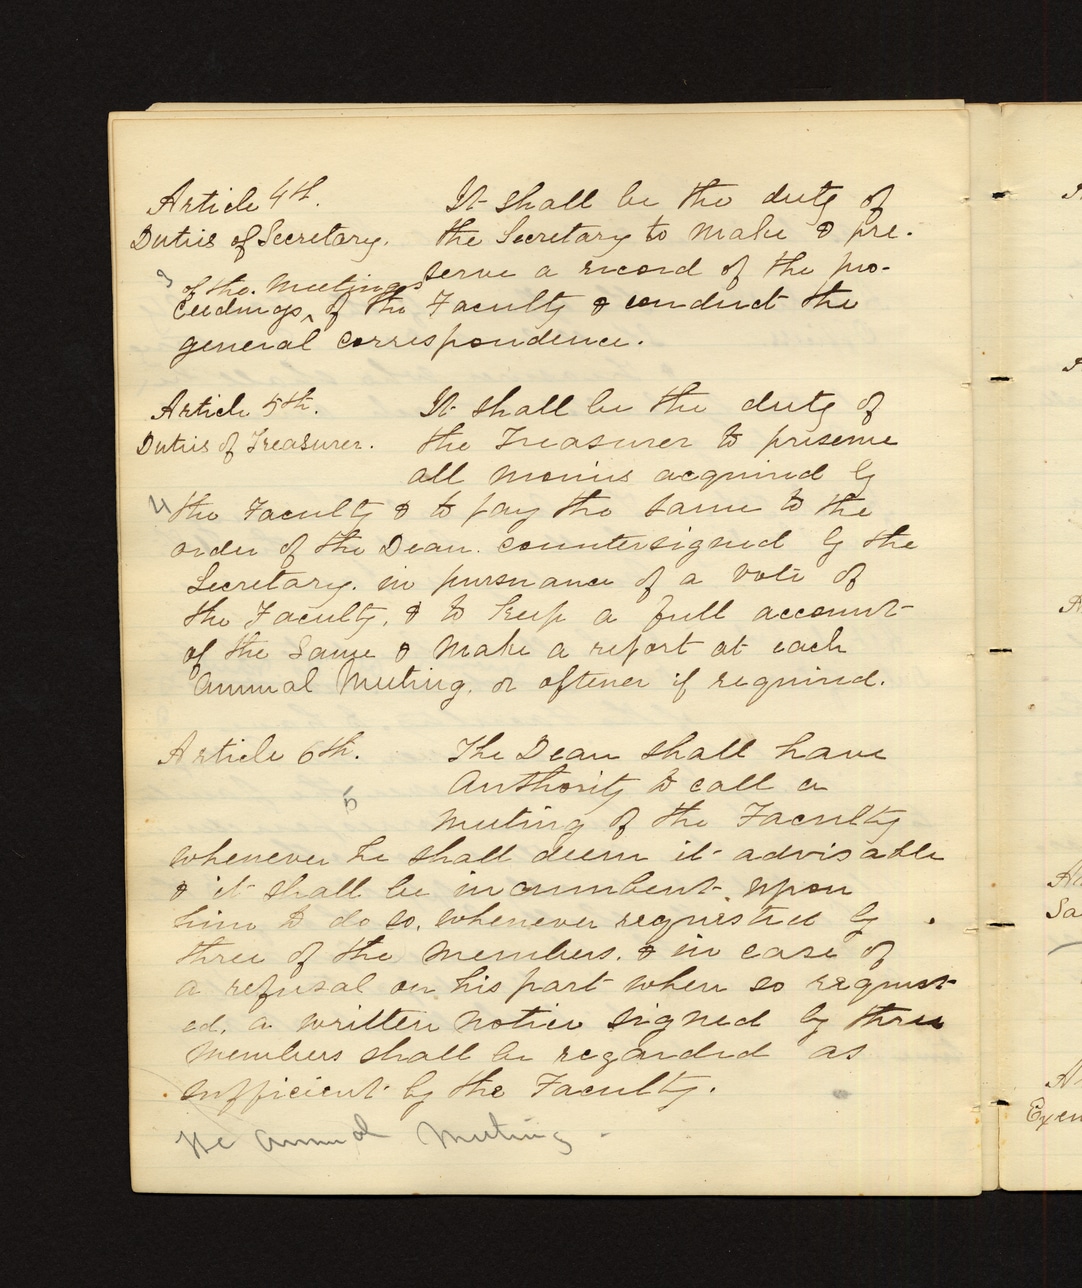 Article 4th. It shall be the duty of
Duties of Secretary. the Secretary to make & pre-
serve a record of the pro-
3 of the Meetings
ceedings ^ of the Faculty & conduct the
general correspondence.
Article 5th. It shall be the duty of
Duties of Treasurer. the Treasurer to preserve
all monies acquired by
4 the Faculty & to pay the same to the
order of the Dean. countersigned by the
Secretary. in pursuance of a vote of
the Faculty, & to keep a full account
of the same & make a report at each
annual Meeting. or oftener if required.
Article 6th. The Dean shall have
Authority to call a
5
meeting of the Faculty
whenever he shall deem it advisable
& it shall be incumbent upon
him to do so, whenever requested by
three of the members. & in case of
a refusal on his part when so request-
ed, a written notice signed by three
members shall be regarded as
sufficient by the Faculty.
Annual Meeting
Sa
Exen